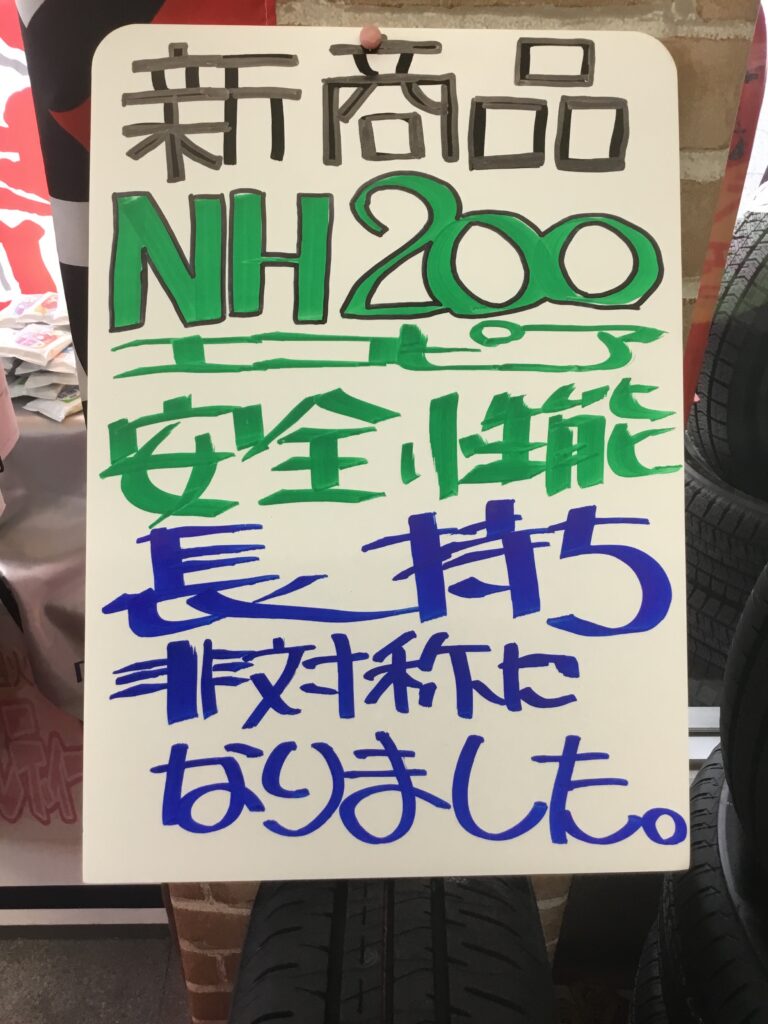 新商品
NH200
エコピア
安全性能
長持ち
非対称に
なりました。